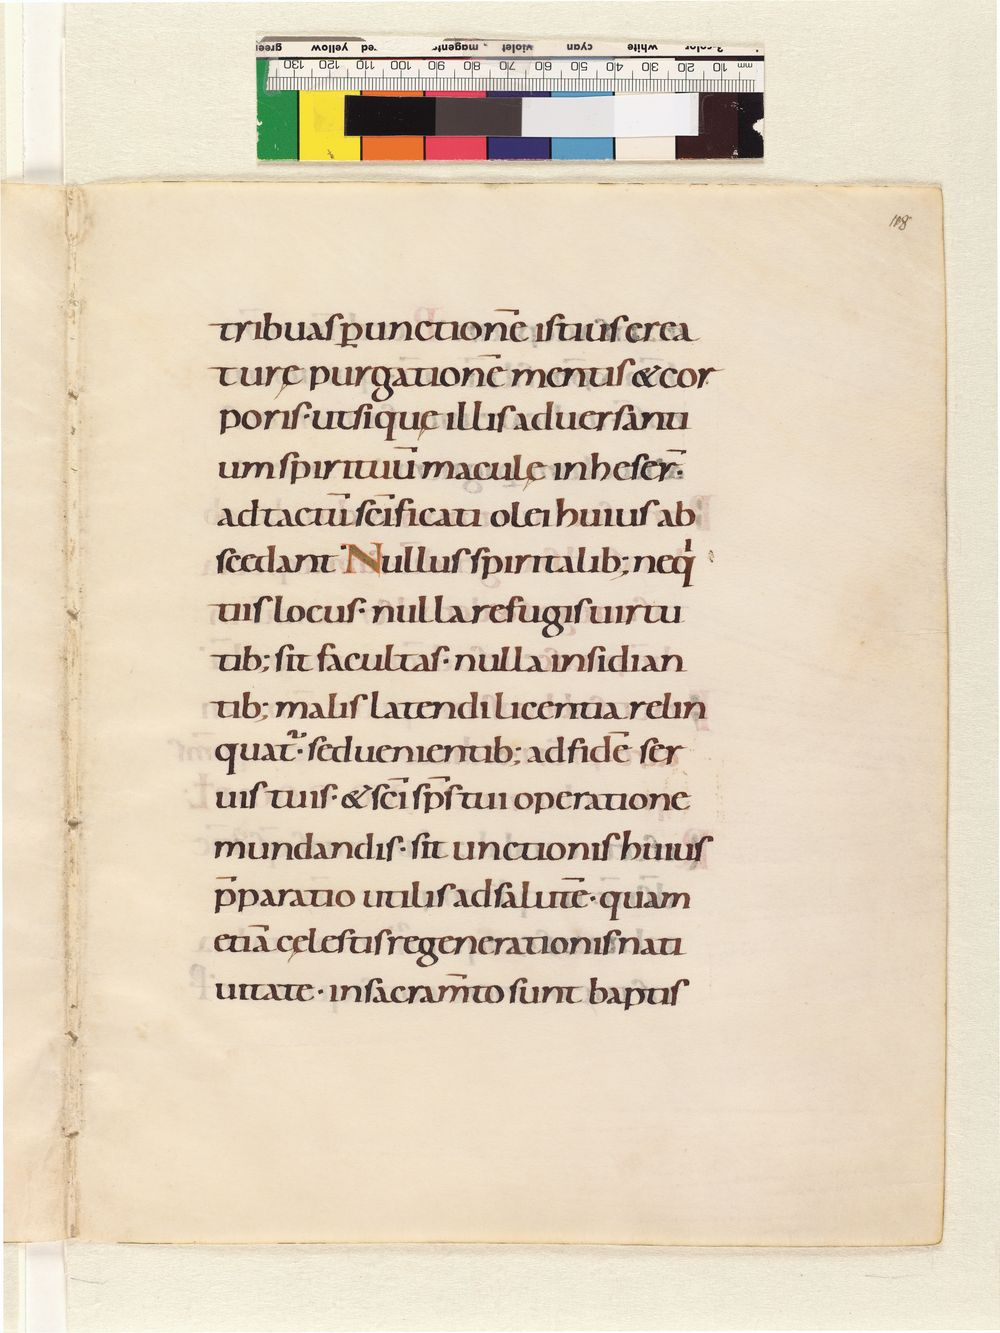 108
tribuas ꝑ unctionē istius crea
turę purgationē mentis & cor
poris · ut siquę illis aduersanti
um spirituū maculę inheser̄ ·
ad tactū sc̄ificati olei huius ab
scedant · Nullus spiritalib; neqͥ
tiis locus · nulla refugis uirtu
tib; sit facultas · nulla insidian
tib; malis latendi licentia relin
quat᷑ · sed uenientib; ad fidē ser
uis tuis · & sc̄i sp̄s tui operatione
mundandis · sit unctionis huius
p̄paratio utilis ad salutē · quam
etiā cęlestis regenerationis nati
uitate · in sacram̄to sunt baptis